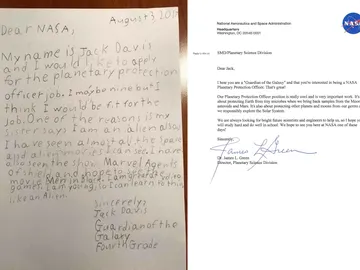 August 3, 2017
Dear NASA,
My name is Jack Davis
and I would like to apply
for the planetary protection
officer job. I may be nine but I
think I would be fit for the
job. One of the reasons is my
sister says I am an alien also
I have seen almost all the space
and alien movies I can see. I have
also seen the show Marvel Agents
of Shield and hope to see the
movie Men in Black. I am great at video
games. I am young, so I can learn to think
like an Alien.
Sincerely,
Jack Davis
Guardian of the
Galaxy
Fourth Grade
National Aeronautics and Space Administration
Headquarters
Washington, DC 20546-0001
NASA
SMD/Planetary Science Division
Dear Jack,
I hear you are a "Guardian of the Galaxy" and that you're interested in being a NASA
Planetary Protection Officer. That's great!
Our Planetary Protection Officer position is really cool and is very important work. It's
about protecting Earth from tiny microbes when we bring back samples from the Moon,
asteroids and Mars. It's also about protecting other planets and moons from our germs as
we responsibly explore the Solar System.
We are always looking for bright future scientists and engineers to help us, so I hope you
will study hard and do well in school. We hope to see you here at NASA one of these
days!
Sincerely,
James L Green
Dr. James L. Green
Director, Planetary Science Division